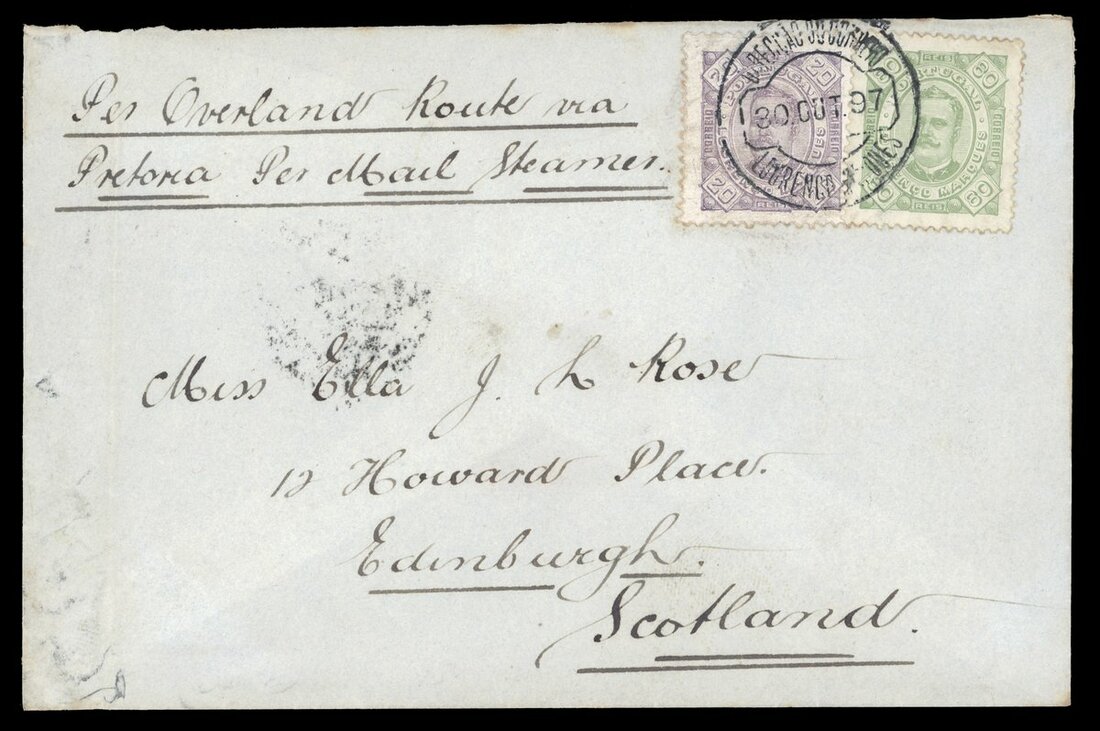 Per Overland Route via
Pretoria Per Mail Steamer.
20 20
PORTUGAL
CORREIO CORREIO
MARQUES
20
REIS
DO CORREIO
30.OUT.97
LOURENÇO MARQUES
REIS
80
PORTUGAL
CORREIO
LOURENÇO MARQUES
80
REIS
Miss Ella J. L Rose
12 Howard Place.
Edinburgh.
Scotland.